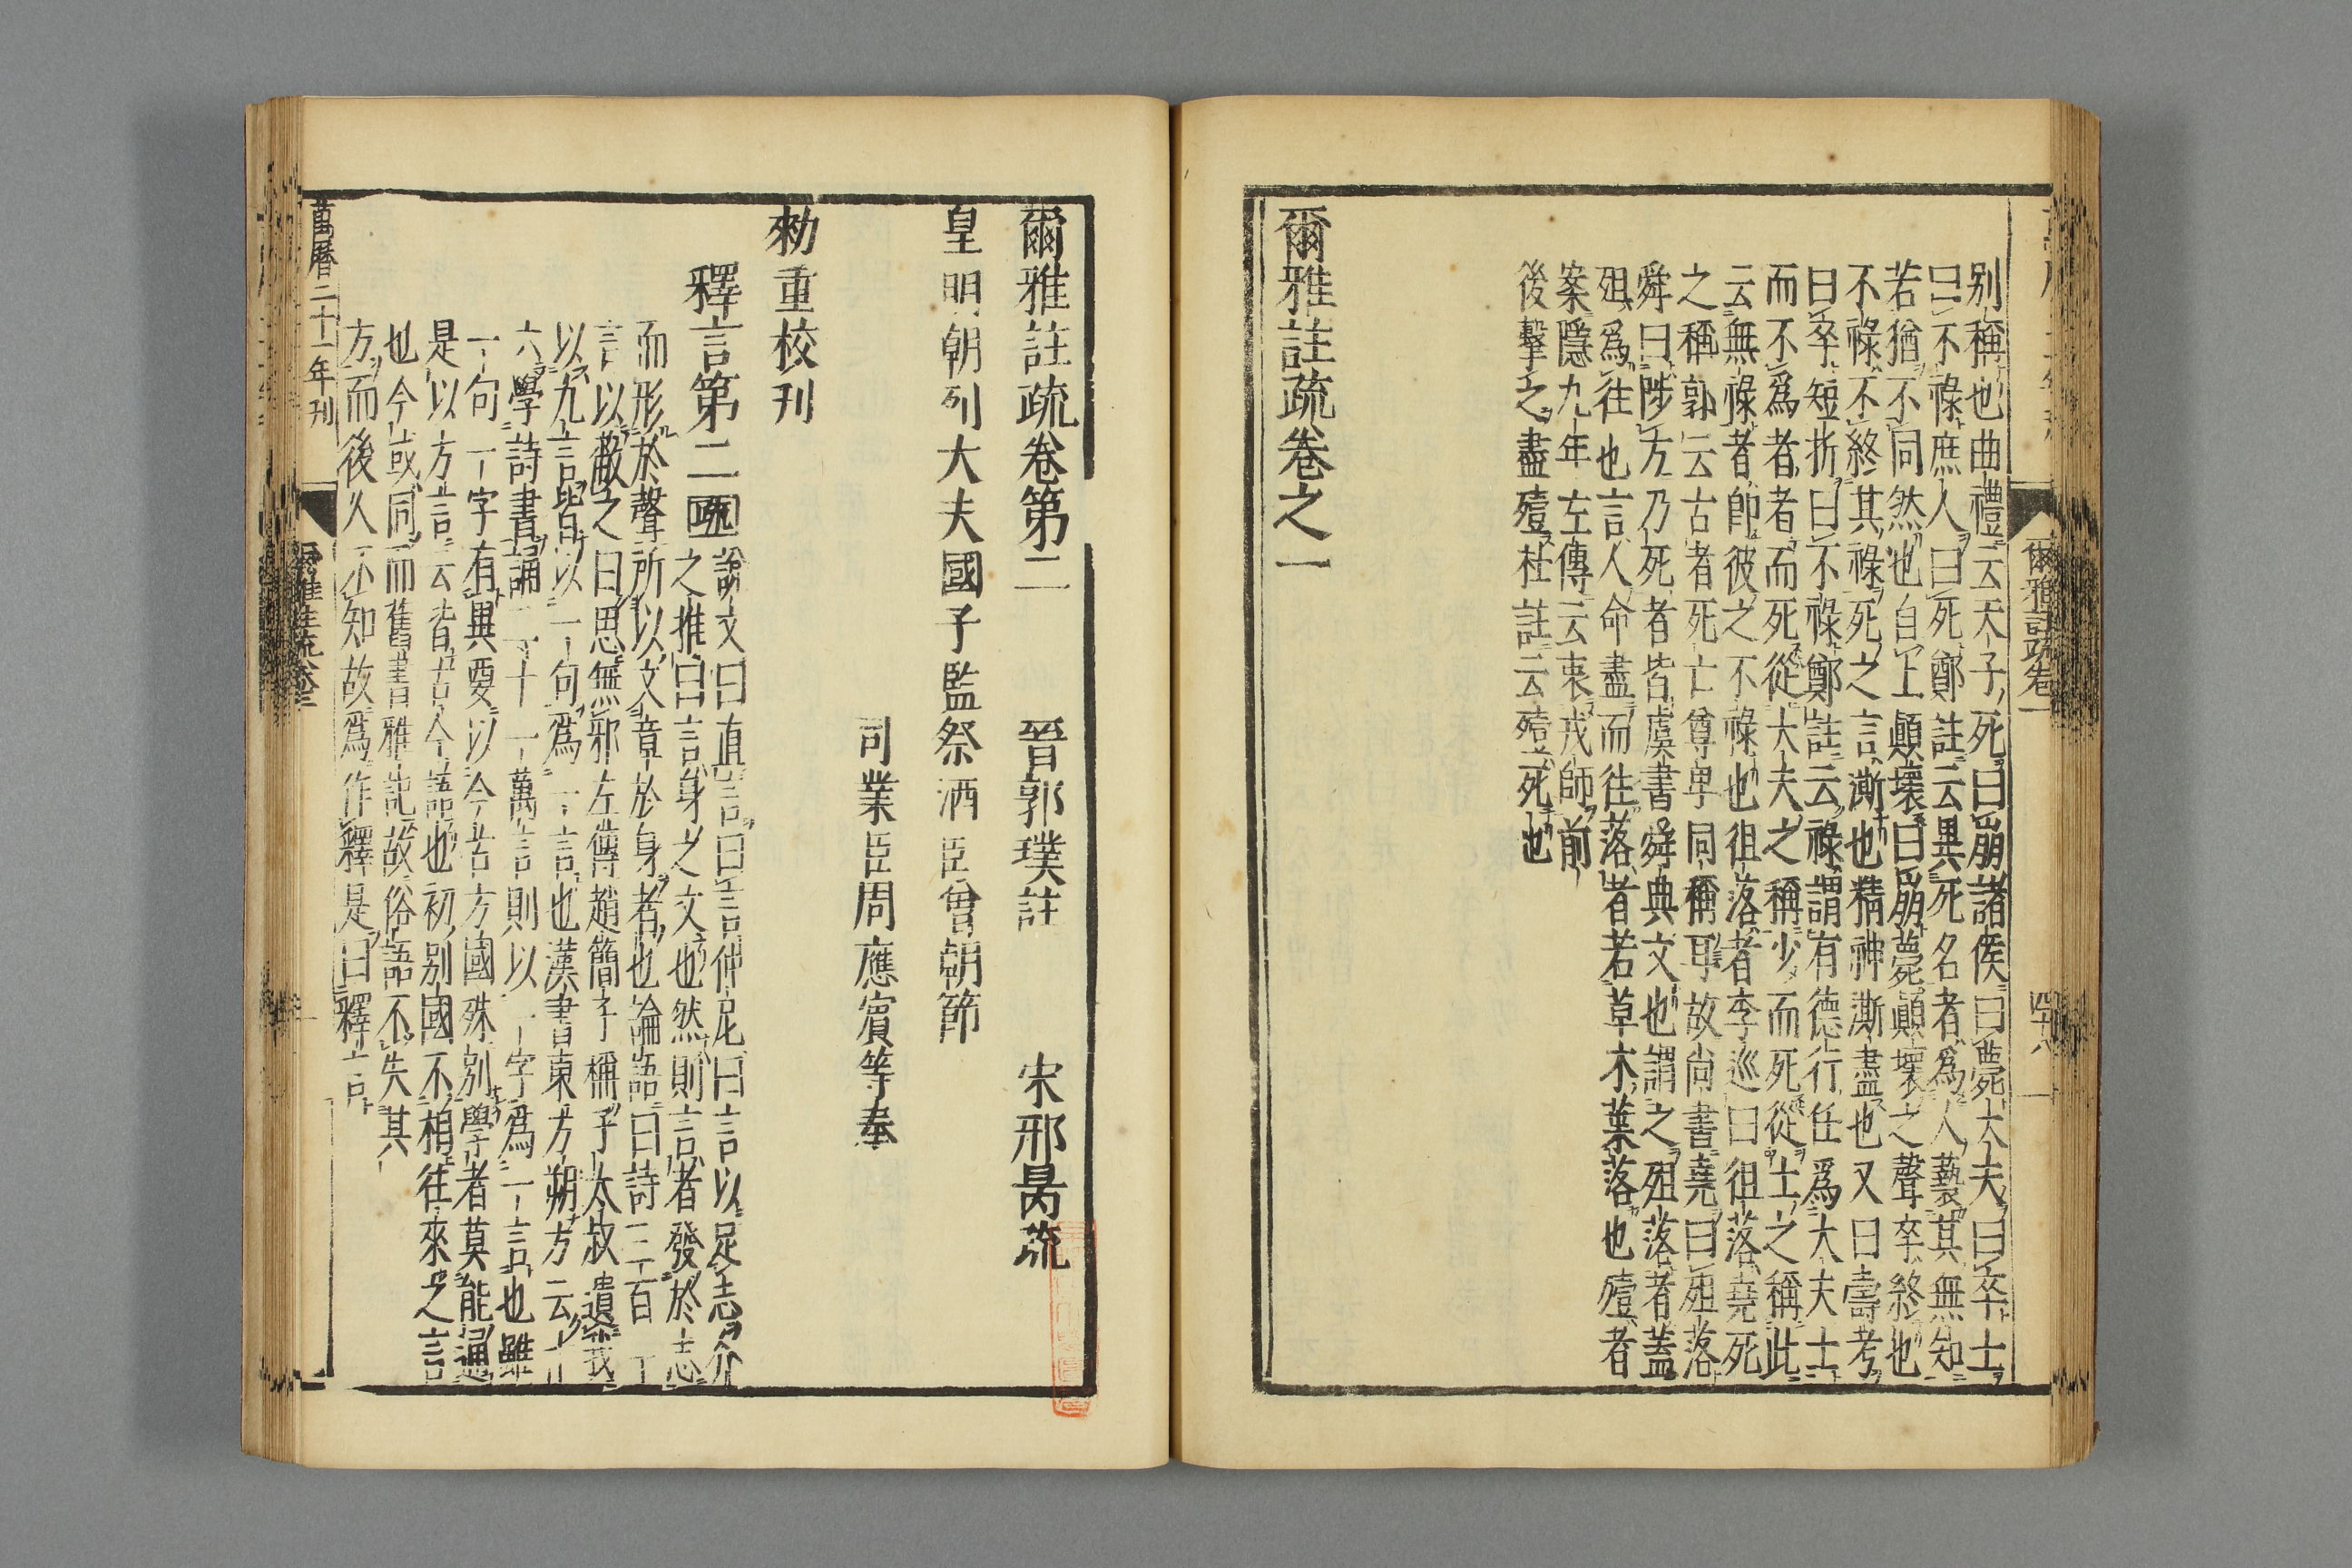 爾雅註疏卷一
四十八
别稱也曲禮云天子死曰崩諸侯曰薨大夫曰卒士
曰不祿庶人曰死鄭註云異死名者爲人䙝其無知
若猶不同然也自上顛壞曰崩薨顛壞之聲卒終也
不祿不終其祿死之言澌也精神澌盡也又曰壽考
曰卒短折曰不祿鄭註云祿謂有德行任爲大夫士
而不爲者者而死從大夫之稱少而死從士之稱此
云無祿者卽彼之不祿也徂落者李巡曰徂落堯死
之稱郭云古者死亡尊卑同稱耳故尚書堯曰殂落
舜曰陟方乃死者皆虞書舜典文也謂之殂落者蓋
殂爲往也言人命盡而往落者若草木葉落也殪者
案隱九年左傳云衷戎師前
後擊之盡殪杜註云殪死也
爾雅註疏卷之一
爾雅註疏卷第二　晉郭璞註　宋邢昺疏
皇明朝列大夫國子監祭酒臣曾朝節
司業臣周應賓等奉
勑重校刊
釋言第二 疏 說文曰直言曰言仲尼曰言以足志介
之推曰言身之文也然則言者發於志
而形於聲所以文章於身者也論語曰詩三百一
言以蔽之曰思無邪左傳趙簡子稱子太叔遺我
以九言皆以一句爲一言也漢書東方朔云十
六學詩書誦二十二萬言則以一字爲一言也雖
一句一字有異要以今古方國殊别學者莫能通
是以方言云皆古今語也初别國不相往來之言
也今或同而舊書雅記故俗語不失其
方而後人不知故爲作釋是曰釋言
萬曆二十一年刊
爾雅註疏卷二